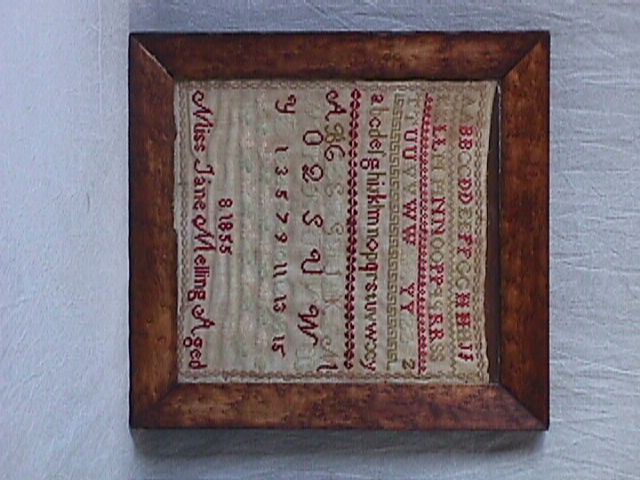 A A B B C C D D E E F F G G H H I J J
K K L L M M N N O O P P Q Q R R S S
T T U U V V W W X X Y Y Z
a b c d e f g h i j k l m n o p q r s t u v w x y
A B C E G I K M
O Q S U W
Y 1 3 5 7 9 11 13 15
Miss Jane Melling Aged
8 1855